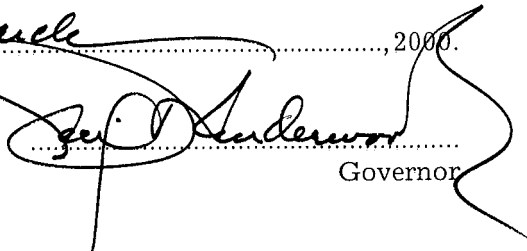 , 2000.
Cecil H Underwood
Governor